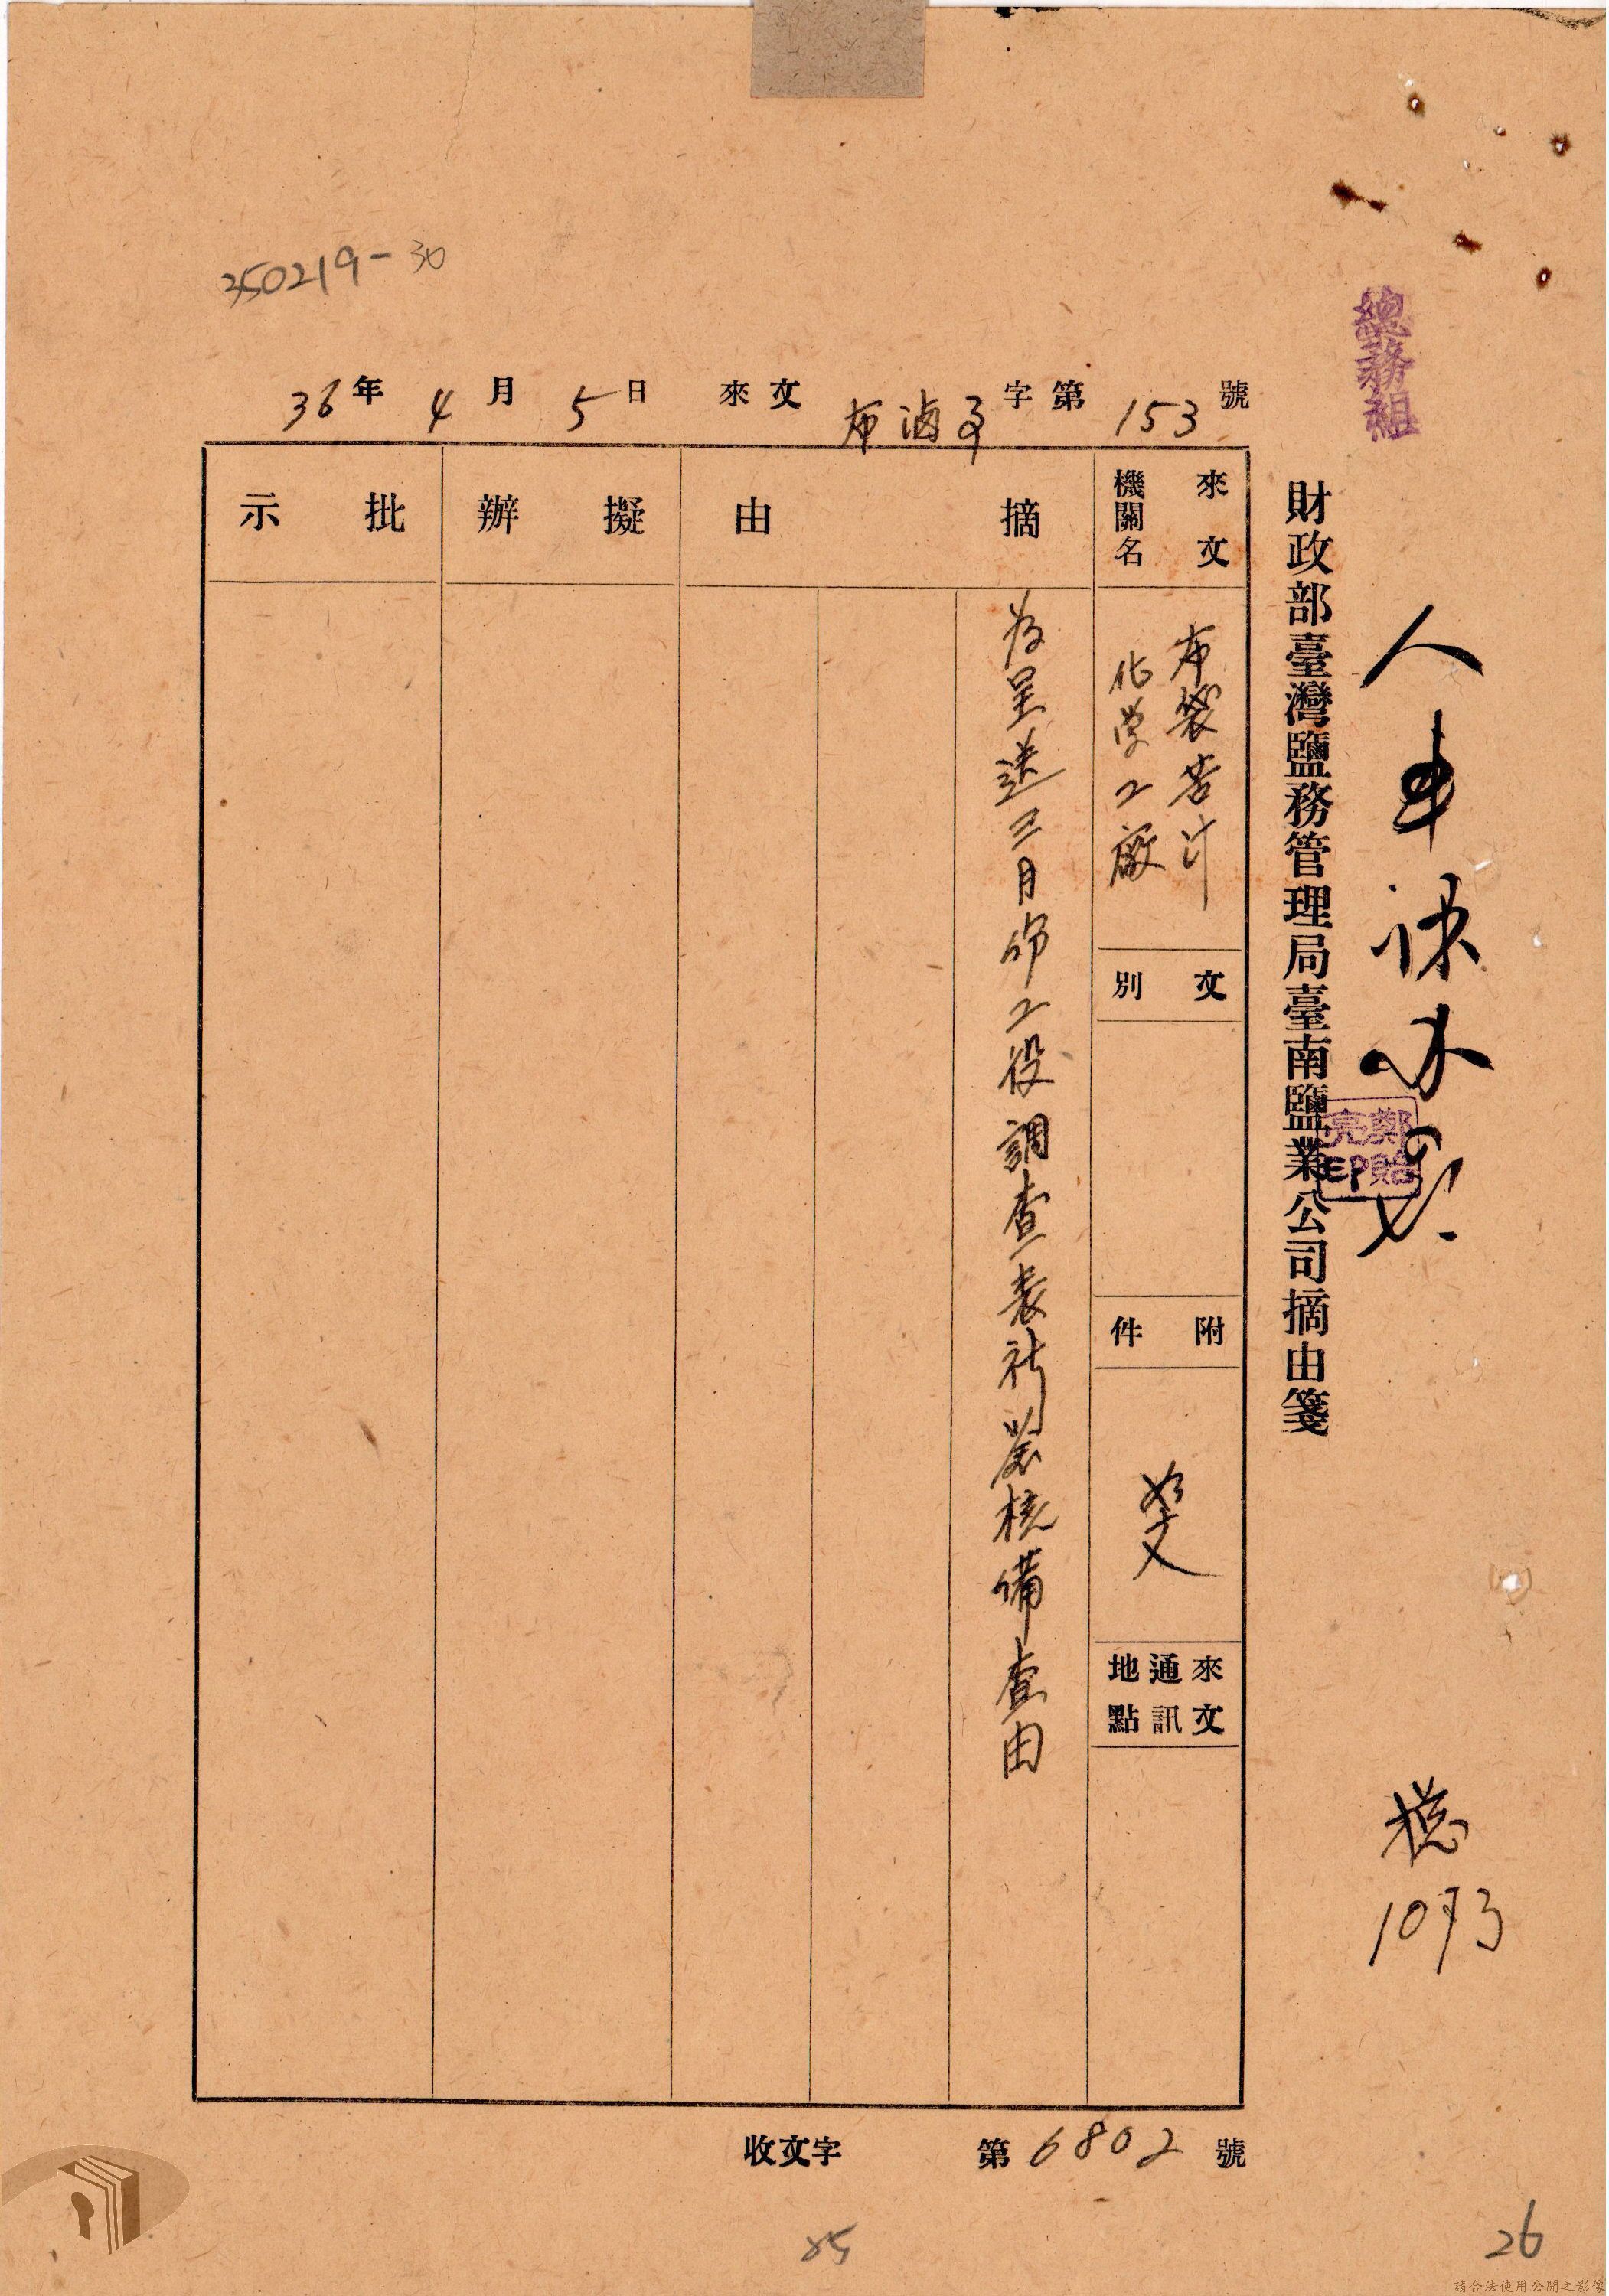 350219-30
總務組
36年4月5日來文布滷 字第153號
財政部臺灣鹽務管理局臺南鹽業公司摘由箋
人事課
鄭貽亮印
總
1073
來文機關名
布袋苦汁
化学工廠
文別
附件
如文
來文通訊地點
摘由
為呈送三月份工役調查表祈鑒核備查由
擬辦
批示
收文字第6802號
85
26
請合法使用公開之影像